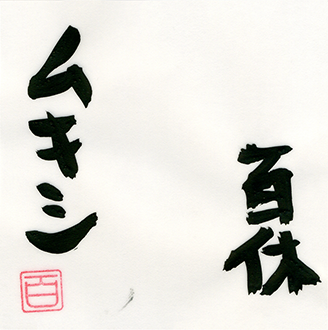 百休
ムキシ
百